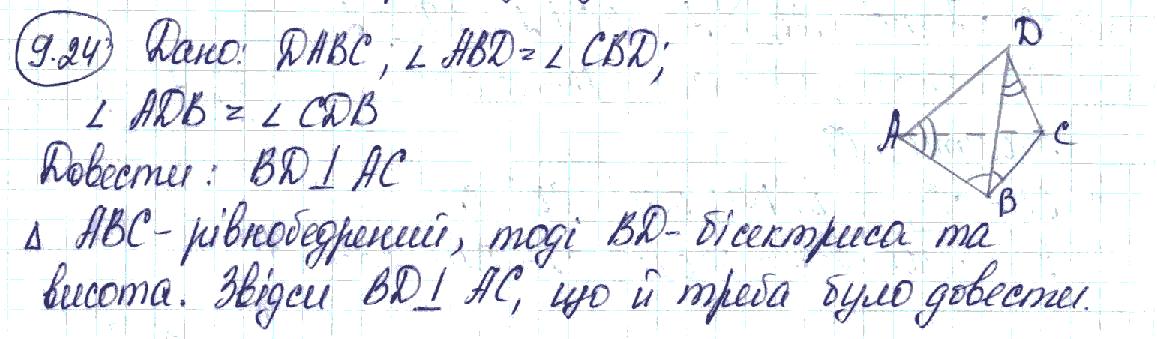 9.24 Дано: DABC; ∠ ABD = ∠ CBD;
∠ ADB = ∠ CDB
Довести: BD ⊥ AC
Δ ABC - рівнобедрений, тоді BD - бісектриса та
висота. Звідси BD ⊥ AC, що й треба було довести.
D
A
C
B